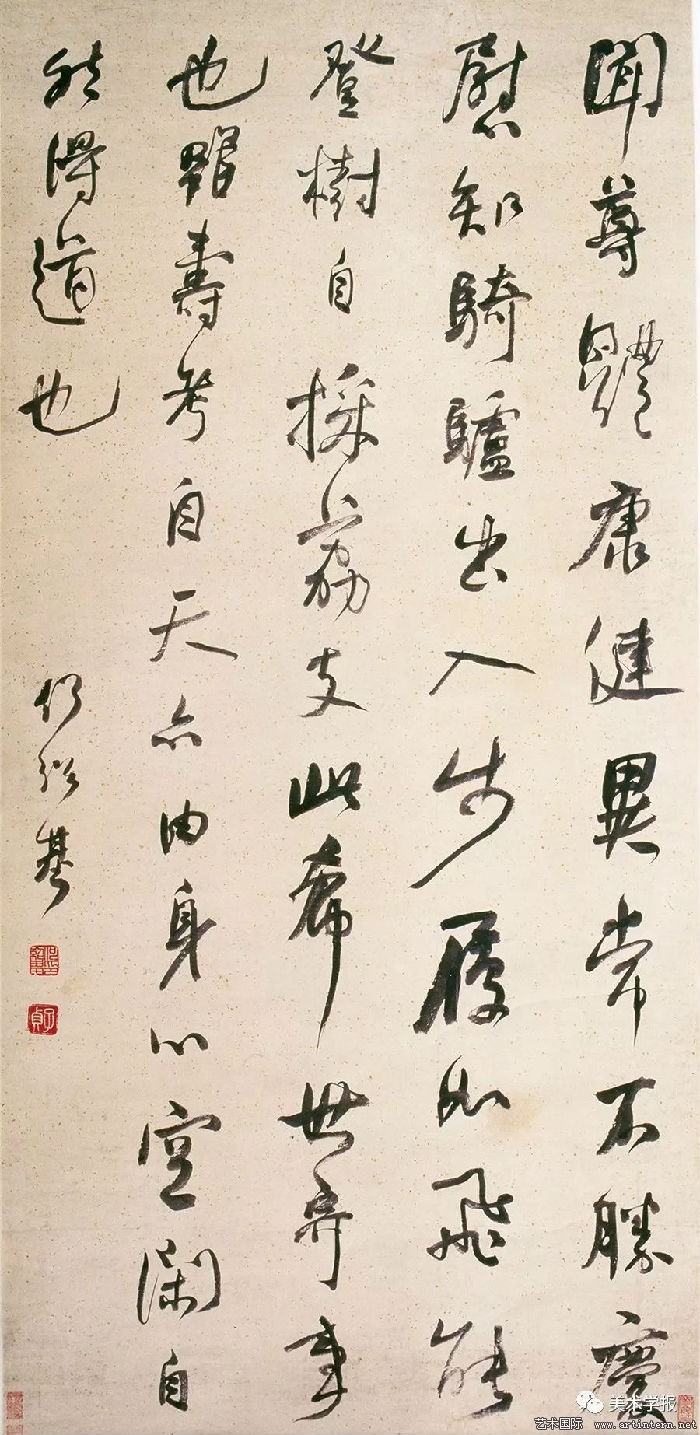 聞尊體康健異常不勝慶
慰知騎驢出入步履如飛能
登樹自採荔支此希世奇事
也雖壽考自天亦由身心空闊自
然得道也
何紹基
子貞
美术学报
艺术国际 www.artintern.net